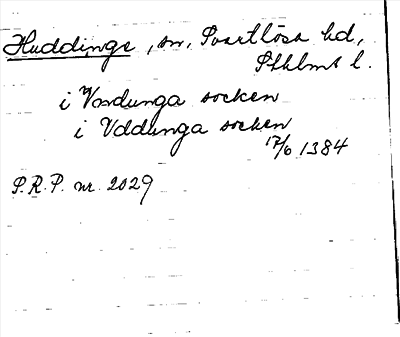 Huddinge, sn, Svartlösa hd,
Sthlms l.
i Vddunga socken
i Vddunga socken
17/6 1384
P.R.P. nr. 2029